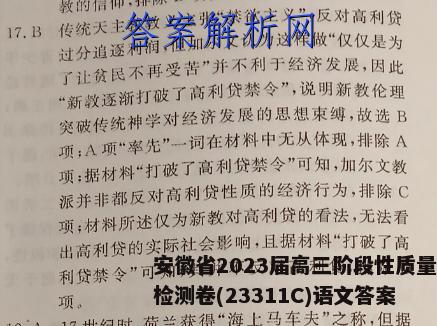 教的信仰,排除
17.B 传统天主 反对高利贷
答案解析网
过分追逐利润 这样做“仅仅是为
了让贫民不再受苦”并不利于经济发展,因此
“新教逐渐打破了高利贷禁令”,说明新教伦理
突破传统神学对经济发展的思想束缚,故选 B
项;A 项“率先”一词在材料中无从体现,排除 A
项;据材料“打破了高利贷禁令”可知,加尔文教
派并非都反对高利贷性质的经济行为,排除 C
项;材料所述仅为新教对高利贷的看法,无法看
出高利贷的实际社会影响,且据材料“打破了高
利贷禁令”可
项。
安徽省2023届高三阶段性质量
检测卷(23311C)语文答案
17世纪时,荷兰获得“海上马车夫”之称,但据